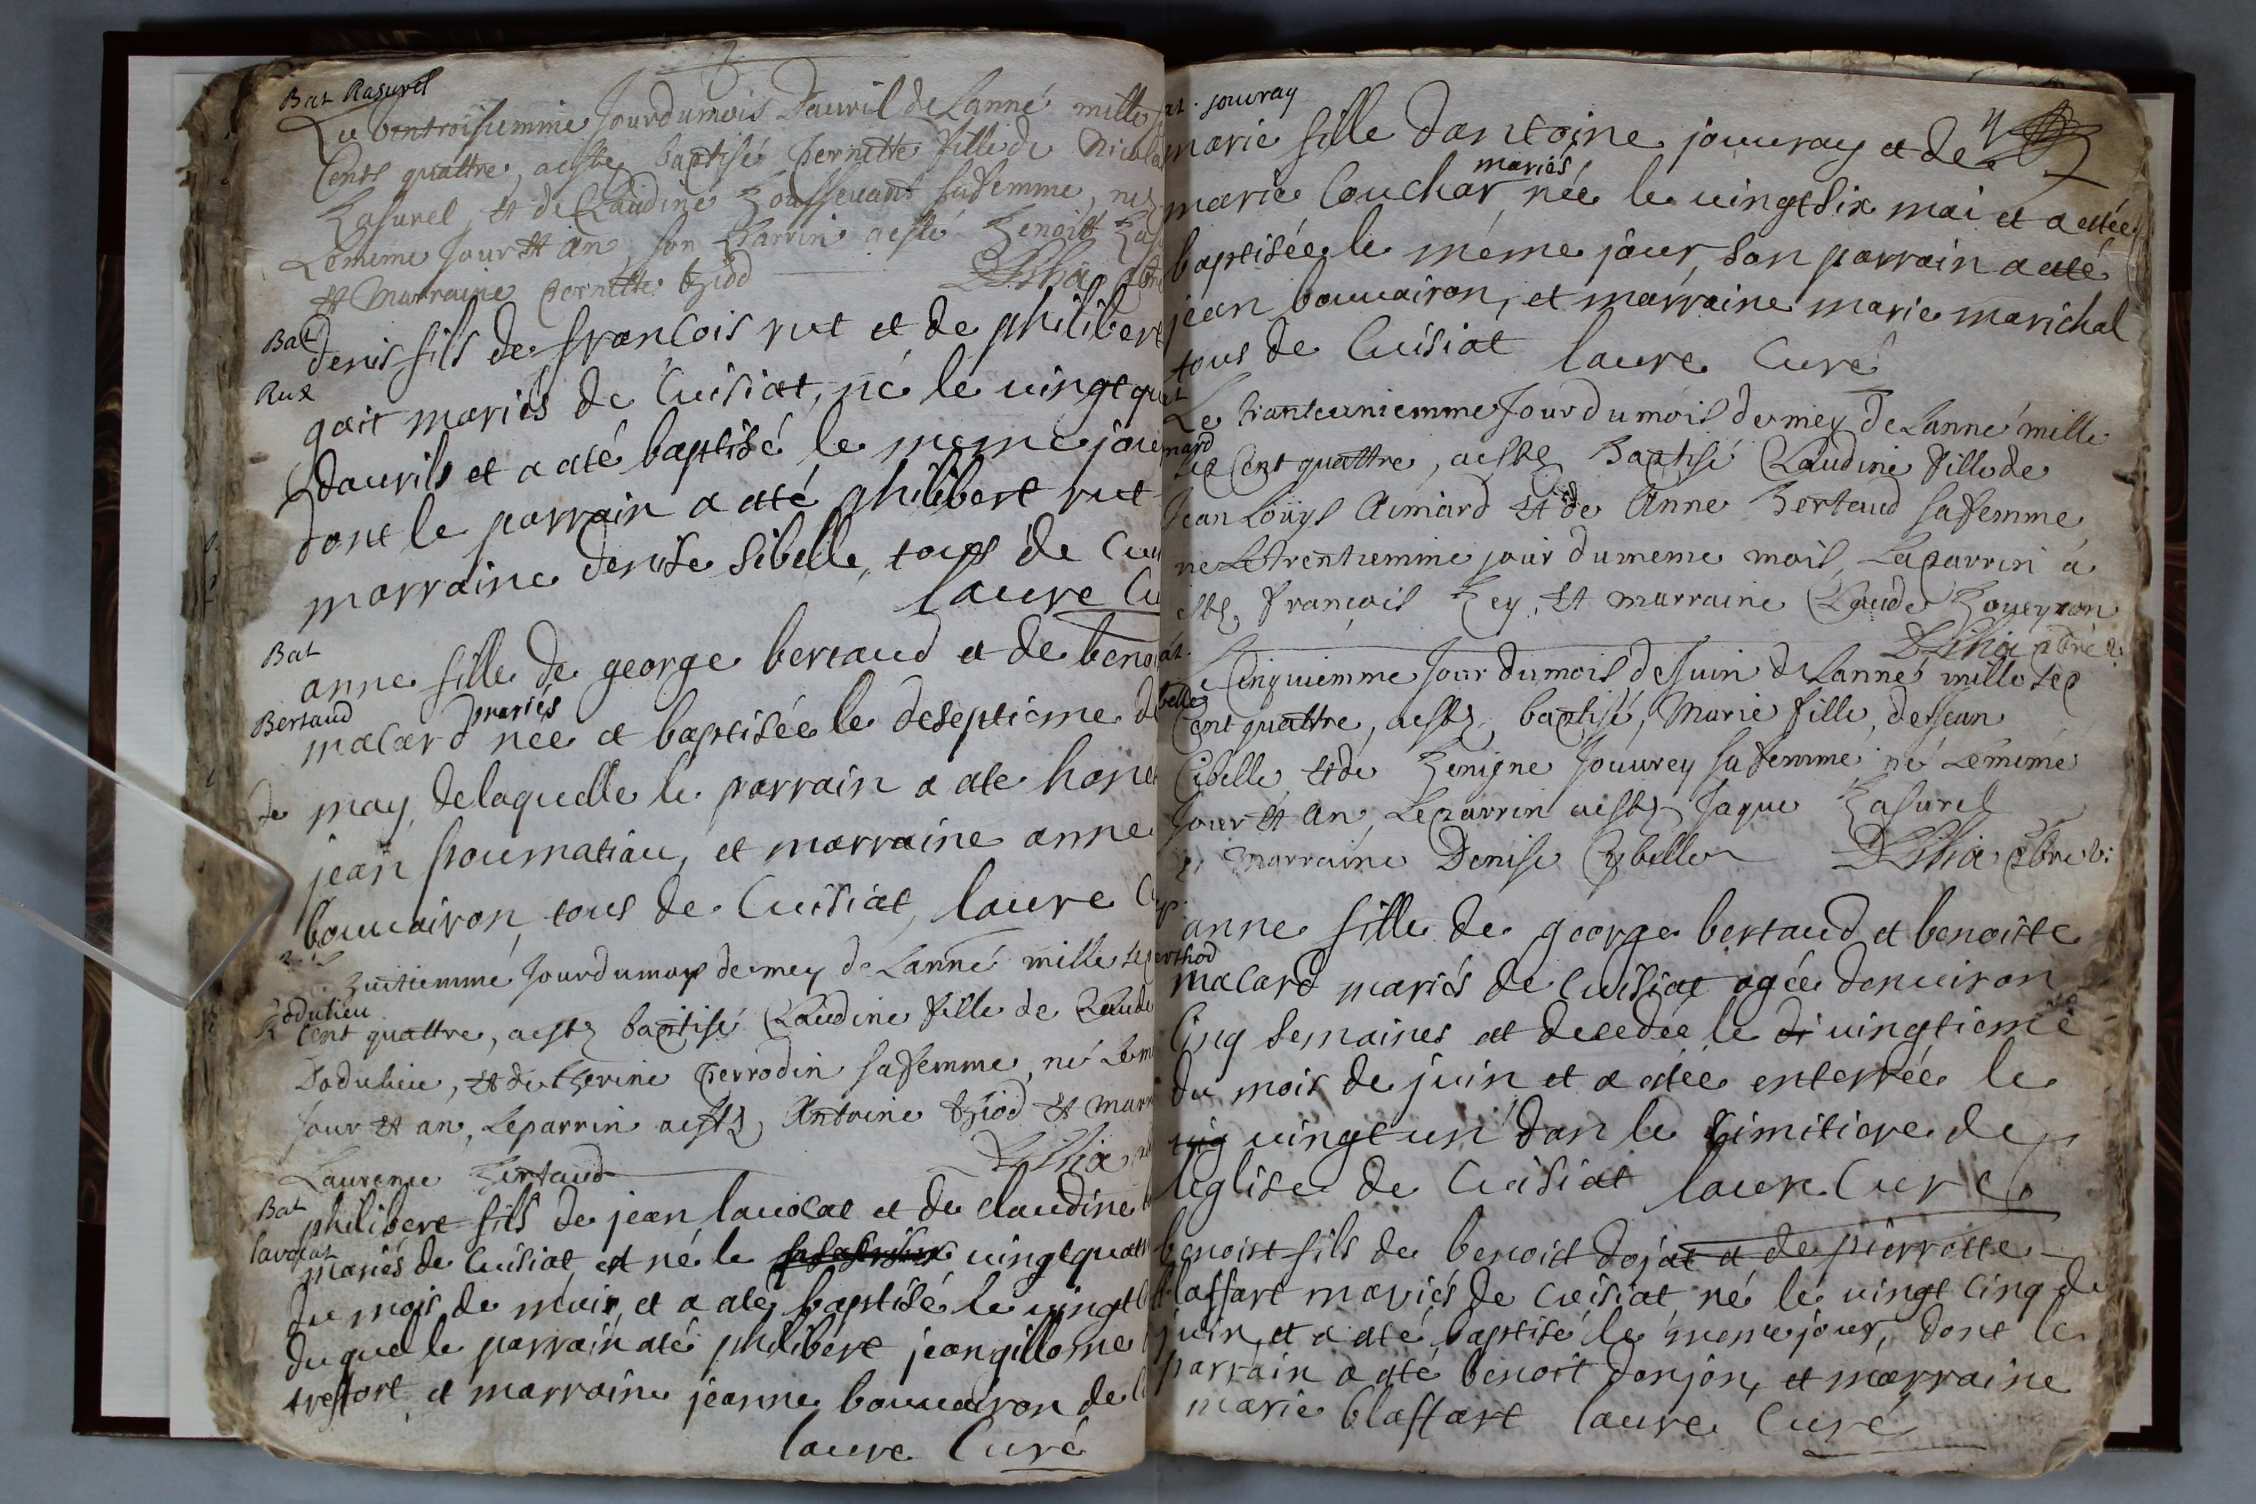 Bat Rasurel
Le ventroisiemme Jour du mois Dauril de Lanné mille
Cents quattre, aestez baptisé pernette fille de Nicola
Rasurel, et de Claudine Rousseuant sa femme, nez
Lemême Jour et an, son Parrin aesté Benoist Ras
et Marraine pernette
Bat
denis fils de francois rut et de philibert
Rut
gait mariés de Cuisiat, né le vingt qu
dauvrils et a été baptisé le meme jour
dont le parrain a été philibert rut
marraine denise sibelle, tous de Cui
laure Cu
Bat
anne fille de george bertaud et de beno
Bertaud
macard mariés née et baptisée le deseptieme d
de may, delaquelle le parrain a ate hone
jean poumatiau, et marraine anne
bouuairon, tous de Cuisiat, laure C
huitiemme Jour du moys de mey de Lanné mille sep
Dodulieu
Cent quattre, aestez baptisé Claudine fille de Claude
Dodulieu, et de therine perrodin sa femme, né Lem
Jour et an, Leparrin aestez Antoine et Marr
Laurence Bertaud
Bat
philibert fils de jean lauocat et de claudine
lavocat
mariés de Cuisiat, est né le vingt quatr
du mois de mais, et a ate, baptisé le vingt
duquel le parrain até philibert jeangillome
tresfort, et marraine jeanne bouuairon de
laure Curé
at. jouvray
marie fille dantoine jouuray et de
marie Couchar mariés née le vingt six mai et a etée
baptisée le même jour, son parrain a eté
jean bouuairon, et marraine marie marichal
tous de Cuisiat laure Curé
Le tranteuniemme Jour du mois de mey de Lanné mille
mard
sep Cent quattre, aestez Baptisé Claudine fille de
Jean Louys Aimard et de Anne Bertaud sa femme
ne Le trentiemme jour du meme mois, Leparrin à
estez François Rey, et marraine Claude Boueyron
at.
Le Cinquiemme Jour du mois de Juin de Lanné mille sep
belles
Cent quattre, aestez baptisé, Marie fille, de Jean
Cibelle, et de Benigne Jouurey sa femme né Lemême
Jour et an, Leparrin aestez Jaque Rasurel
et marraine Denise Cybelle
anne fille de george bertaud et benoiste
erthod
macard mariés de Cuisiat agée denuiron
Cinq semaines et decedée le di vingtieme
du mois de juin et a etée enterrée le
vig vingt un dan le simitiere de
leglise de Cuisiat laure Curé
benoist fils de benoict dojat et de pierrette
blaffart mariés de Cuisiat né le vingt Cinq de
juin, et a até baptisé le meme jour, dont le
parrain a até benoit donjon, et marraine
marie blaffart laure Curé